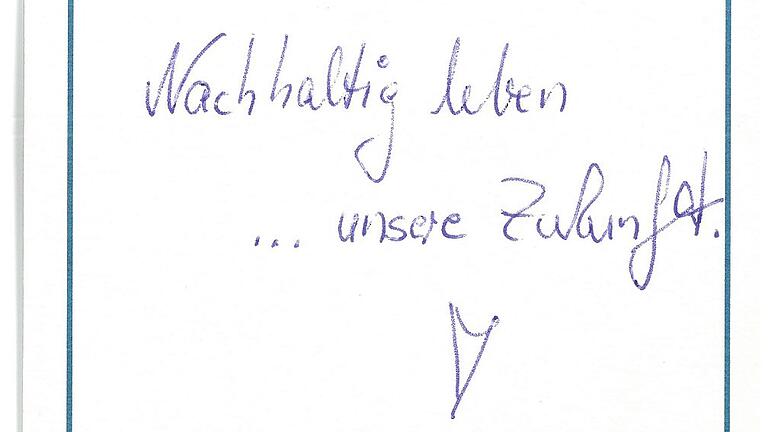 Nachhaltig leben
... unsere Zukunft.